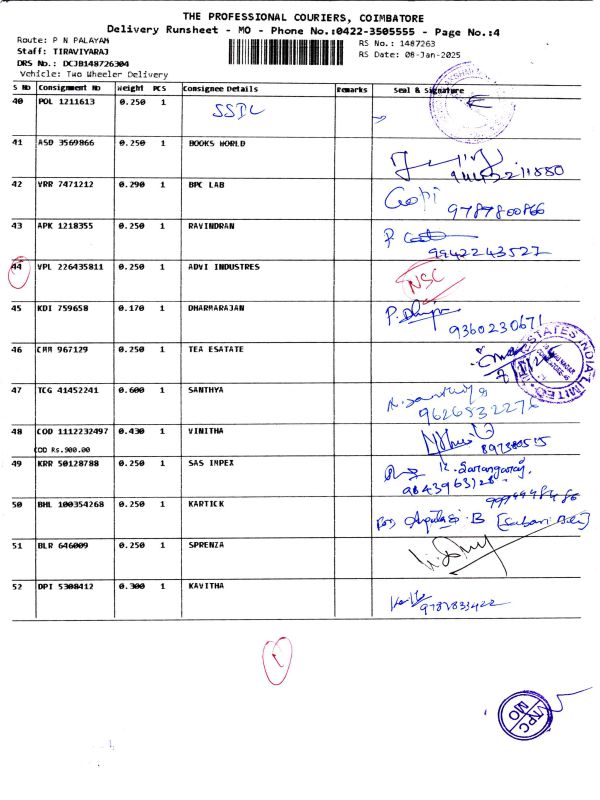 THE PROFESSIONAL COURIERS, COIMBATORE
Delivery Runsheet - MO - Phone No.:0422-3505555 - Page No.:4
Route: P N PALAYAM
RS No.: 1487263
Staff: TIRAVIYARAJ
RS Date: 08-Jan-2025
DRS No.: DCJB148726304
Vehicle: Two Wheeler Delivery
S NO Consignment No Weight PCS Consignee Details Remarks Seal & Signature
40 POL 1211613 0.250 1
41 ASD 3569866 0.250 1 BOOKS WORLD
42 VRR 7471212 0.290 1 BPC LAB Gopi
9787800866
43 APK 1218355 0.250 1 RAVINDRAN
9942243527
44 VPL 226435811 0.250 1 ADVI INDUSTRES NSC
45 KDI 759658 0.170 1 DHARMARAJAN
9360230671
46 CHM 967129 0.250 1 TEA ESATATE
ESTATES INDIA LIMITED
47 TCG 41452241 0.600 1 SANTHYA
9626832276
48 COD 1112232497 0.430 1 VINITHA
COD Rs.900.00
49 KRR 50128788 0.250 1 SAS IMPEX
50 BHL 100354268 0.250 1 KARTICK
51 BLR 646009 0.250 1 SPRENZA
52 DPI 5308412 0.300 1 KAVITHA
9787833422
1
VNPC
MO